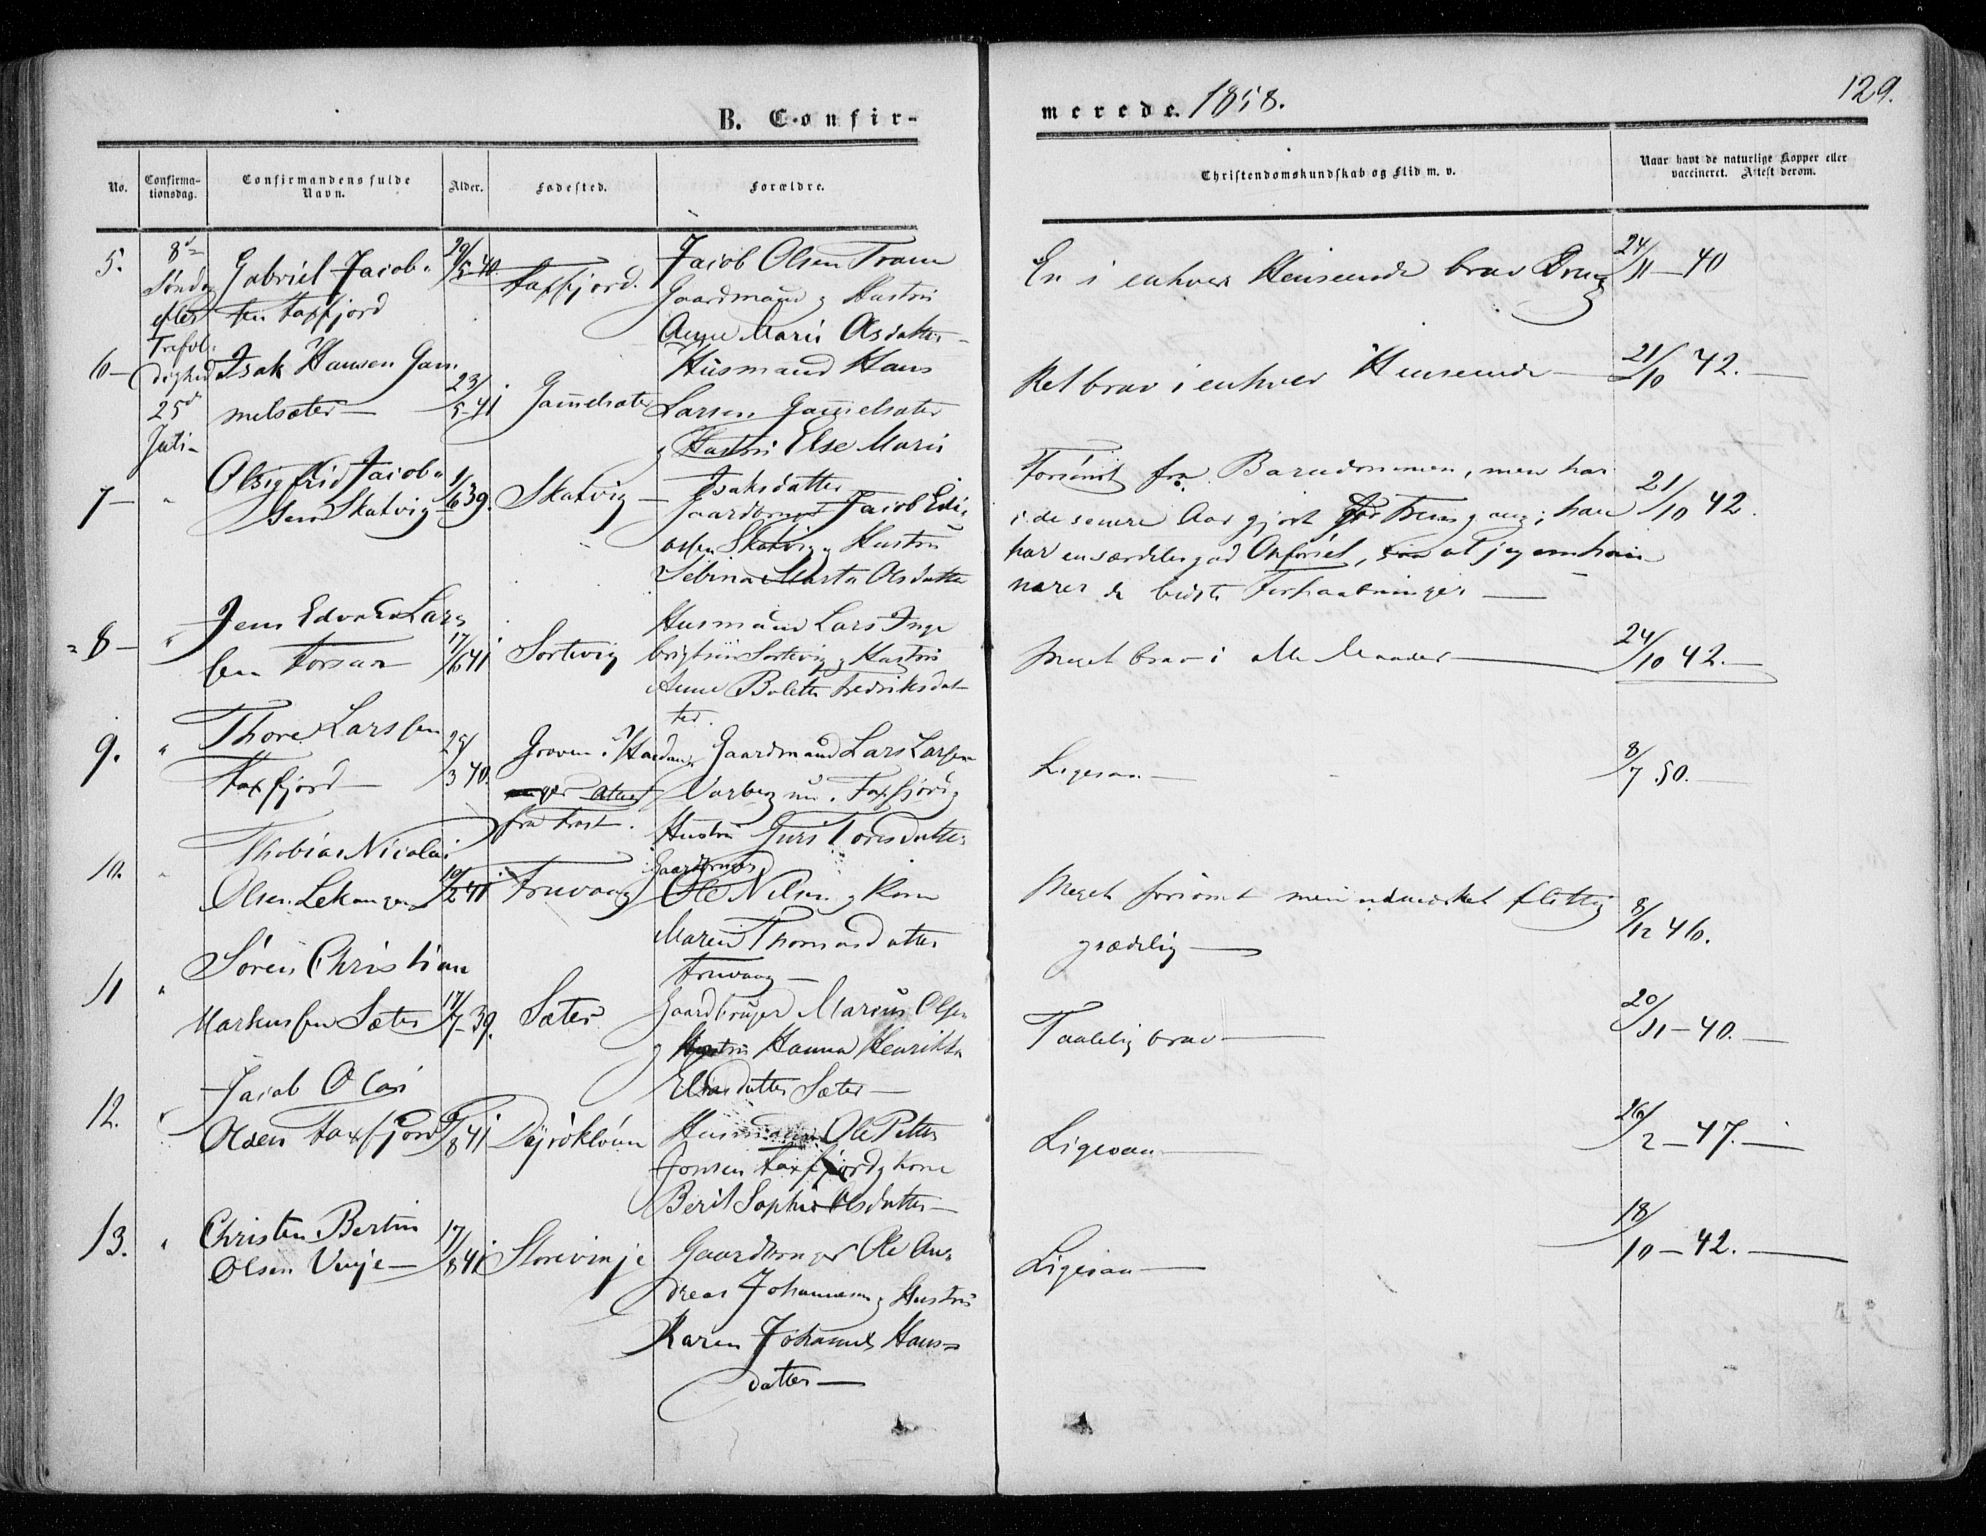 B. Confir-
merede. 1858.
129.
No.
Confirma-
tionsdag.
Confirmandens fulde
Navn.
Alder.
Fødested.
Forældre.
Christendomskundskab og Flid m. v.
Naar havt de naturlige Kopper eller
vaccineret. Attest derom.
5.
8de
Søndag
efter
Trefol-
dighed
25de
Juli
Gabriel Jacob-
sen Faxfjord
29/5 40
Faxfjord.
Jacob Olsen Trane
Gaardmand og Hustru
Anne Marie Olsdatter
En i enhver Henseende brav Dreng
24/11 - 40
6
Isak Hansen Gam
melsæter
23/5 41
Gammelsæter
Husmand Hans
Larsen Gammelsæter
og Hustru Else Marie
Isaksdatter
Ret brav i enhver Henseende
21/10 42.
7
Jacob-
sen Skatvig
1/6 39.
Skatvig
Gaardbruger Jacob Eli-
assen Skatvig og Hustru
Sebina Marta Olsdatter
Forsømt fra Barndommen, men har
i de senere Aar gjort Fremgang; han
har en særdeles god Opførsel, saa at jeg om ham
nærer de bedste Forhaabninger
21/10 42.
8
Jens Edvard Lars
sen Forsaa
17/6 41
Sortevig
Husmand Lars Inge
brigtsen Sortevig og Hustru
Anne Bolette Fredriksdat-
ter.
Meget brav i alle Maader
24/10 42.
9.
Thore Larssen
Faxfjord
25/3 40.
Graven i Hardan
ger Attest
fra Prost.
Gaardmand Lars Larsen
Varberg nu i Faxfjord og
Hustru Guri Toresdatter
Ligesaa
8/7 50.
10.
Thobias Nicolai
Olsen Lekangen
10/2 41
Truvaag
Gaardbruger
Ole Nilsen og Kone
Maren Thomasdatter
Truvaag
Meget forsømt men udmærket flittig
grædelig
8/12 46.
11
Søren Christian
Markussen Sæter
17/7 39.
Sæter
Gaardbruger Marcus Olsen
og Hustru Hanna Henrikke
Eliasdatter Sæter
Taalelig brav
20/11 - 40.
12.
Jacob Olai
Olsen Faxfjord
9/8 41
Dyrøkloven
Husmand Ole Petter
Jonsen Faxfjord og Kone
Berit Sophie Olsdatter
Ligesaa
26/2 - 47.
13.
Christen Bertin
Olsen Vinje
17/8 41
Storevinje
Gaardbruger Ole An-
dreas Johannesen og Hustru
Karen Johanna Hans-
datter
Ligesaa
18/10 - 42.